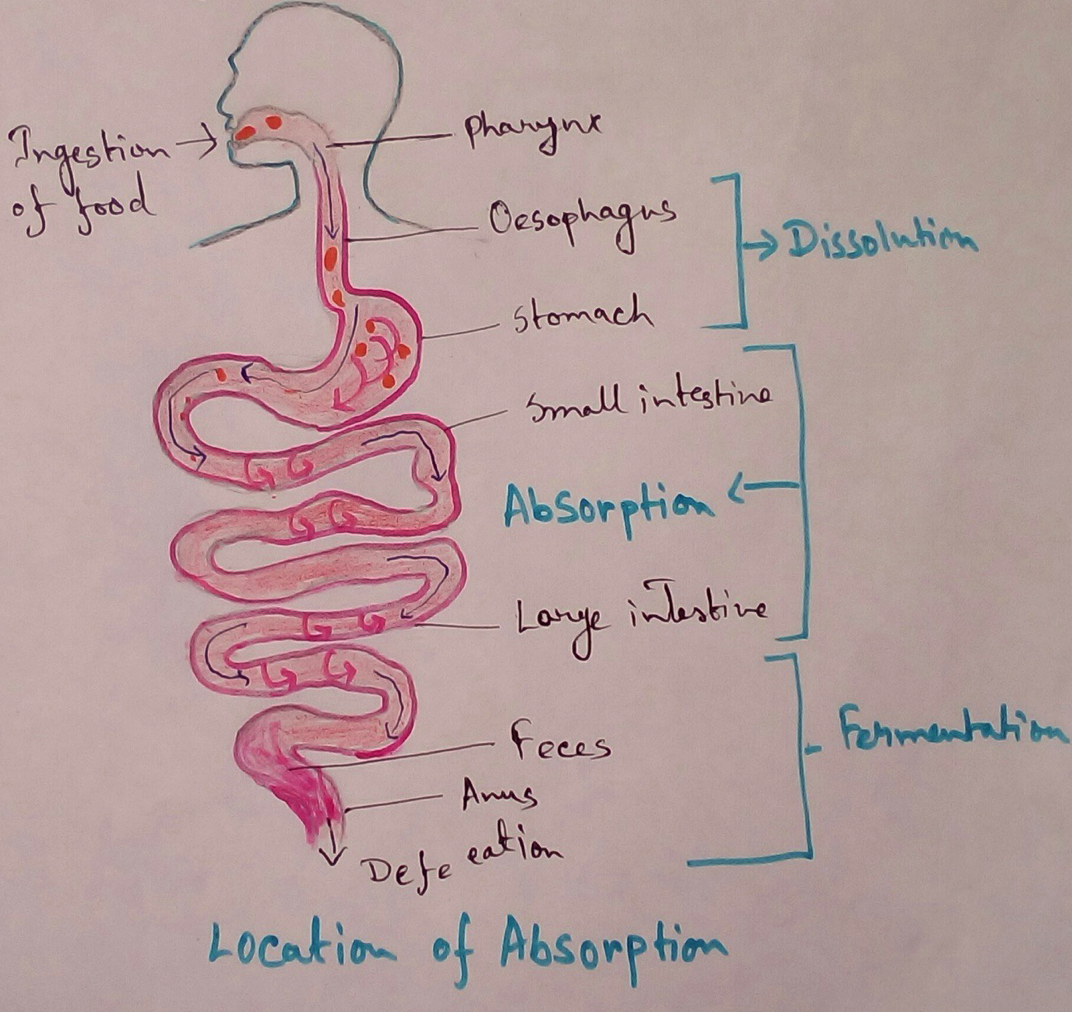 Ingestion
of food
Pharynx
Oesophagus
Dissolution
Stomach
Small intestine
Absorption
Large intestine
Fermentation
Feces
Anus
Defecation
Location of Absorption